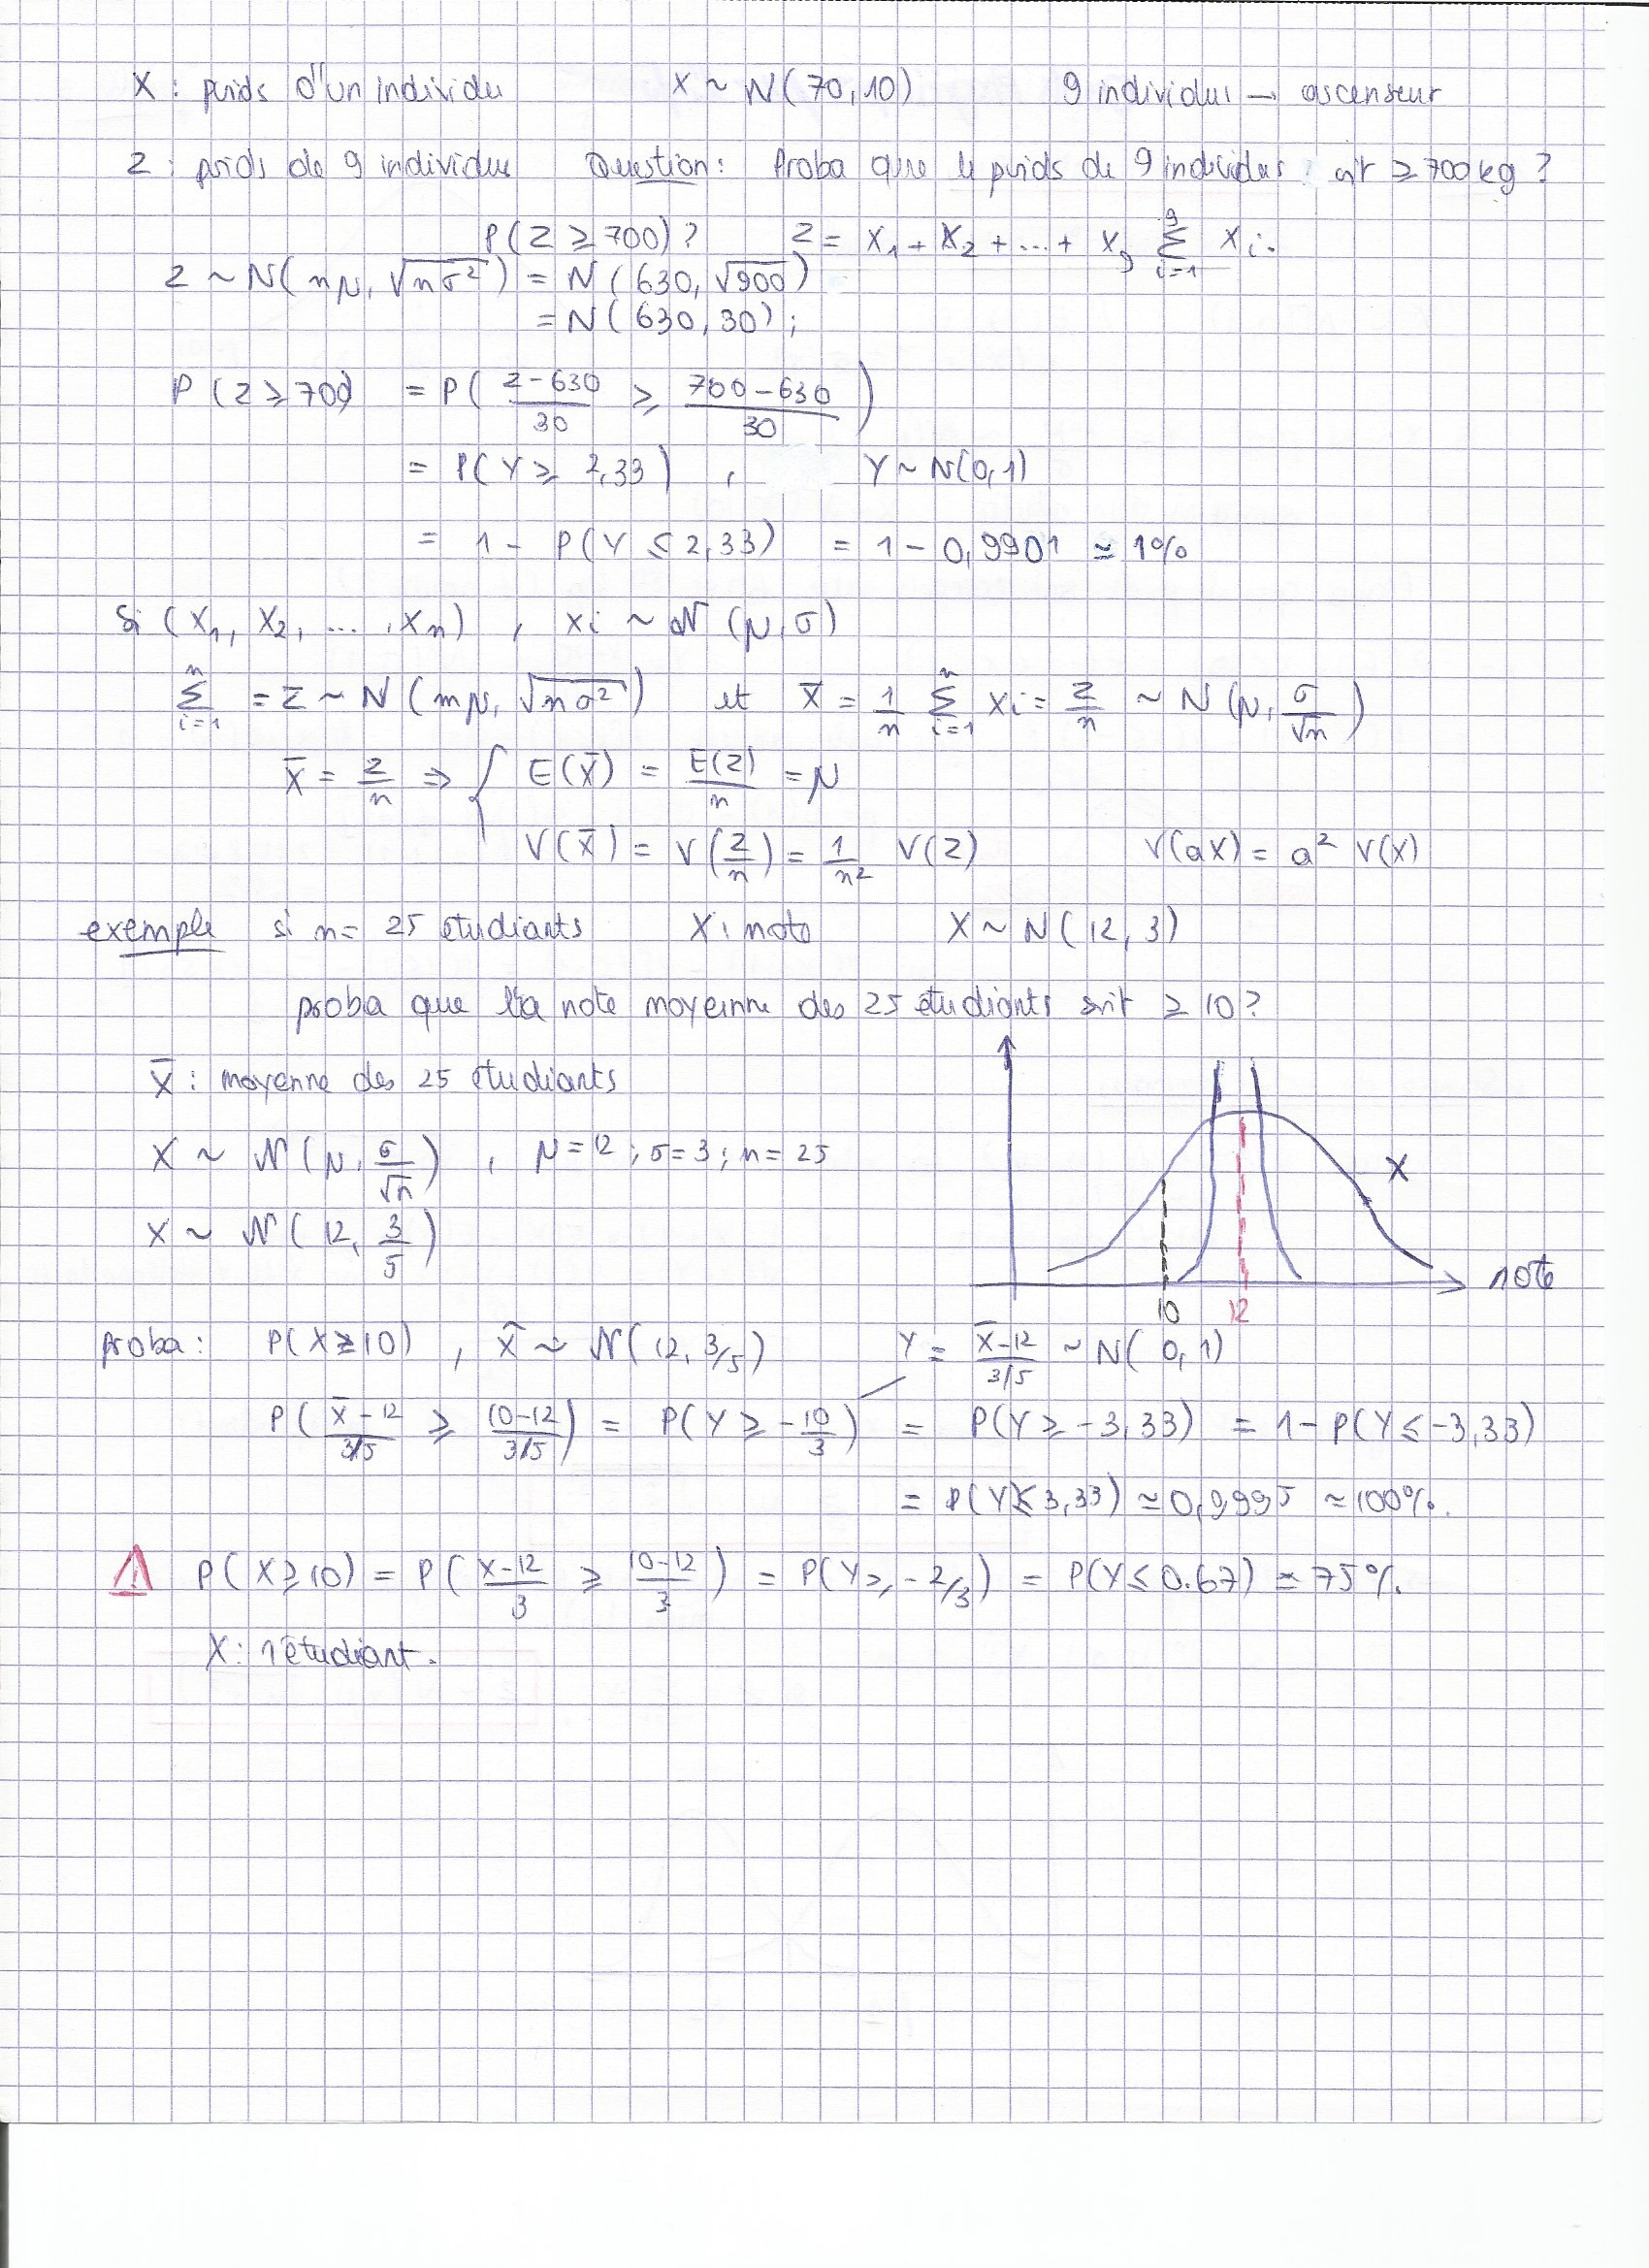 X : poids d'un individu X ~ N(70,10) 9 individus → ascenseur
Z : poids de 9 individus Question: Proba que le poids de 9 individus soit ≥ 700 kg ?
P(Z ≥ 700) ? Z = X₁ + X₂ + ... + X₉ Σ_{i=1}^{9} Xi.
Z ~ N(nμ, √(nσ²)) = N(630, √900)
= N(630, 30) ;
P(Z ≥ 700) = P( (Z-630)/30 ≥ (700-630)/30 )
= P(Y ≥ 2,33) , Y ~ N(0,1)
= 1 - P(Y ≤ 2,33) = 1 - 0,9901 ≃ 1%
Si (X₁, X₂, ... , Xn) , xi ~ N(μ, σ)
Σ_{i=1}^{n} = Z ~ N(nμ, √(nσ²)) et X̄ = 1/n Σ_{i=1}^{n} Xi = Z/n ~ N(μ, σ/√n)
X̄ = Z/n ⇒ { E(X̄) = E(Z)/n = μ
V(X̄) = V(Z/n) = 1/n² V(Z) V(aX) = a² V(X)
exemple si n = 25 étudiants X : note X ~ N(12, 3)
proba que la note moyenne des 25 étudiants soit ≥ 10 ?
X̄ : moyenne des 25 étudiants
X ~ N(μ, σ/√n) , μ = 12 ; σ = 3 ; n = 25
X
X ~ N(12, 3/5)
note
10 12
proba : P(X ≥ 10) , X̄ ~ N(12, 3/5) Y = (X̄-12)/(3/5) ~ N(0,1)
P( (X̄-12)/(3/5) ≥ (10-12)/(3/5) ) = P(Y ≥ -10/3) = P(Y ≥ -3,33) = 1 - P(Y ≤ -3,33)
= P(Y ≤ 3,33) ≃ 0,9995 ≃ 100%.
⚠ P(X ≥ 10) = P( (X-12)/3 ≥ (10-12)/3 ) = P(Y ≥ -2/3) = P(Y ≤ 0.67) ≃ 75%.
X : 1 étudiant.